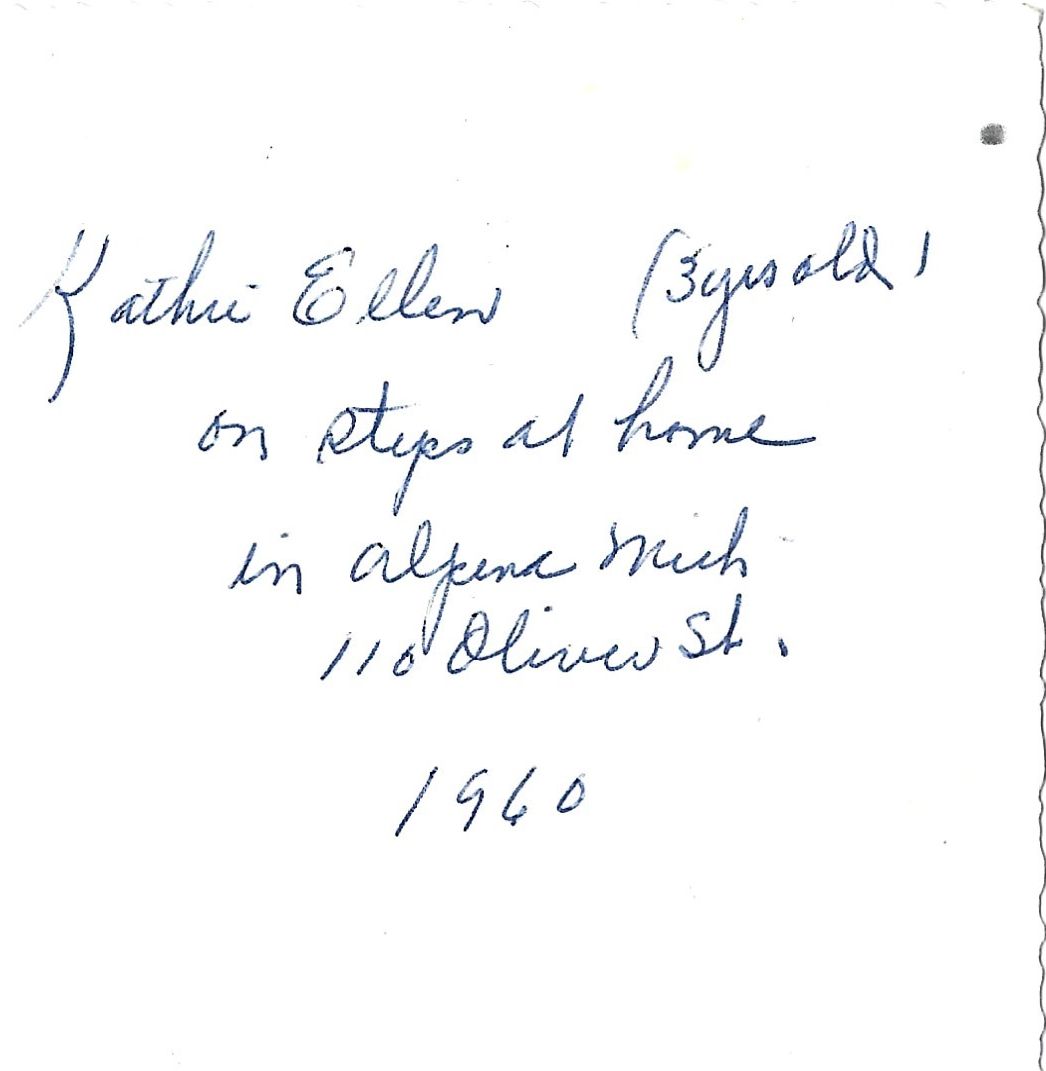 Kathie Ellen (3 yrs old)
on steps at home
in Alpena Mich
110 Oliver St.
1960